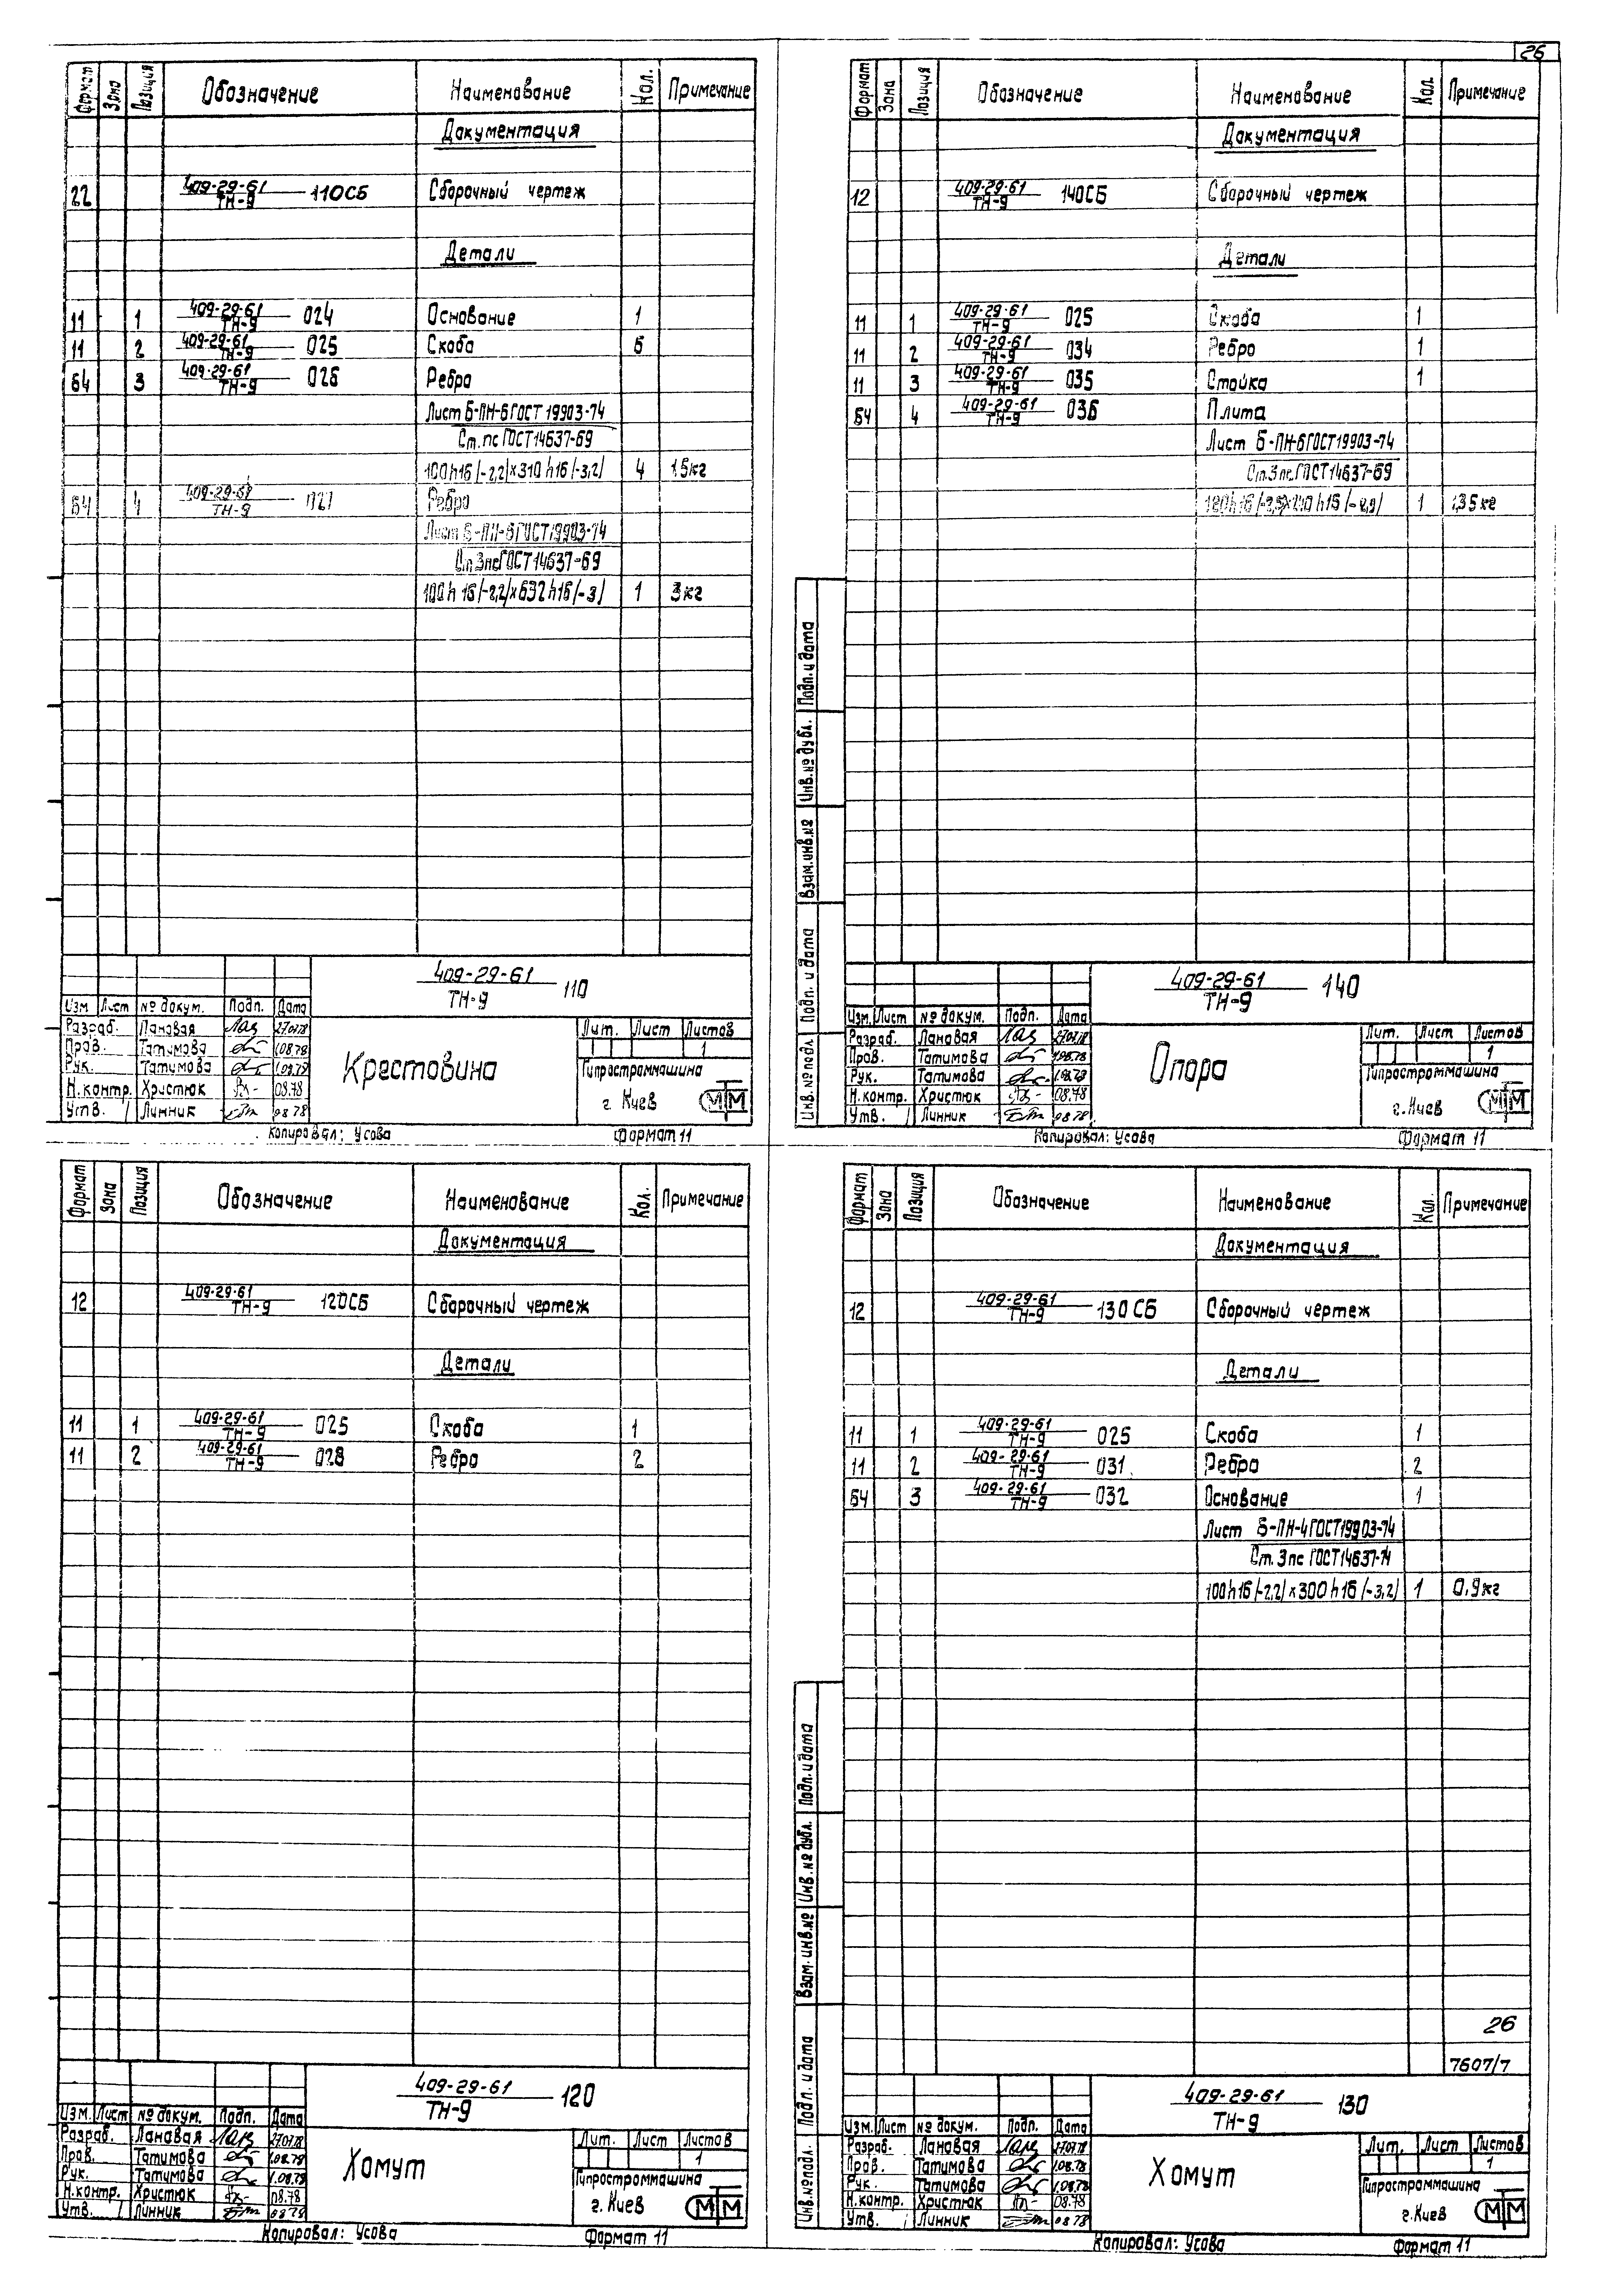 26
Формат Зона Позиция Обозначение Наименование Кол. Примечание
Документация
22 409-29-61/ТН-9 — 110СБ Сборочный чертеж
Детали
11 1 409-29-61/ТН-9 — 024 Основание 1
11 2 409-29-61/ТН-9 — 025 Скоба 6
Б4 3 409-29-61/ТН-9 — 026 Ребро
Лист Б-ПН-6 ГОСТ 19903-74
Ст. пс ГОСТ 14637-69
100h16(-2,2)×310h16(-3,2) 4 1,5 кг
Б4 4 409-29-61/ТН-9 — 027 Ребро
Лист Б-ПН-6 ГОСТ 19903-74
Ст.3пс ГОСТ 14637-69
100h16(-2,2)×632h16(-3) 1 3 кг
409-29-61/ТН-9 — 110
Изм Лист № докум. Подп. Дата
Разраб. Лановая 27.07.78
Пров. Татимова 1.08.78
Рук. Татимова 1.08.78
Н.контр. Христюк 08.78
Утв. Линник 08.78
Крестовина
Лит. Лист Листов
1
Гипростроммашина
г. Киев
Копировал: Усова Формат 11
Формат Зона Позиция Обозначение Наименование Кол. Примечание
Документация
12 409-29-61/ТН-9 140СБ Сборочный чертеж
Детали
11 1 409-29-61/ТН-9 — 025 Скоба 1
11 2 409-29-61/ТН-9 — 034 Ребро 1
11 3 409-29-61/ТН-9 — 035 Стойка 1
Б4 4 409-29-61/ТН-9 — 036 Плита
Лист Б-ПН-6 ГОСТ 19903-74
Ст.3пс ГОСТ 14637-69
1 1,35 кг
Подп. и дата
Инв. № дубл.
Взам. инв. №
Подп. и дата
Инв. № подл.
409-29-61/ТН-9 — 140
Изм. Лист № докум. Подп. Дата
Разраб. Лановая 27.07.78
Пров. Татимова 1.08.78
Рук. Татимова 1.08.78
Н.контр. Христюк 08.78
Утв. Линник 08.78
Опора
Лит. Лист Листов
1
Гипростроммашина
г. Киев
Копировал: Усова Формат 11
Формат Зона Позиция Обозначение Наименование Кол. Примечание
Документация
12 409-29-61/ТН-9 120СБ Сборочный чертеж
Детали
11 1 409-29-61/ТН-9 — 025 Скоба 1
11 2 409-29-61/ТН-9 — 028 Ребро 2
409-29-61/ТН-9 — 120
Изм. Лист № докум. Подп. Дата
Разраб. Лановая 27.07.78
Пров. Татимова 1.08.78
Рук. Татимова 1.08.78
Н.контр. Христюк 08.78
Утв. Линник 08.78
Хомут
Лит. Лист Листов
1
Гипростроммашина
г. Киев
Копировал: Усова Формат 11
Формат Зона Позиция Обозначение Наименование Кол. Примечание
Документация
12 409-29-61/ТН-9 — 130СБ Сборочный чертеж
Детали
11 1 409-29-61/ТН-9 — 025 Скоба 1
11 2 409-29-61/ТН-9 — 031 Ребро 2
Б4 3 409-29-61/ТН-9 — 032 Основание 1
Лист Б-ПН-4 ГОСТ 19903-74
Ст. 3пс ГОСТ 14637-74
100h16(-2,2)×300h16(-3,2) 1 0,9 кг
26
7607/7
Подп. и дата
Инв. № дубл.
Взам. инв. №
Подп. и дата
Инв. № подл.
409-29-61/ТН-9 — 130
Изм. Лист № докум. Подп. Дата
Разраб. Лановая 27.07.78
Пров. Татимова 1.08.78
Рук. Татимова 1.08.78
Н.контр. Христюк 08.78
Утв. Линник 08.78
Хомут
Лит. Лист Листов
1
Гипростроммашина
г. Киев
Копировал: Усова Формат 11